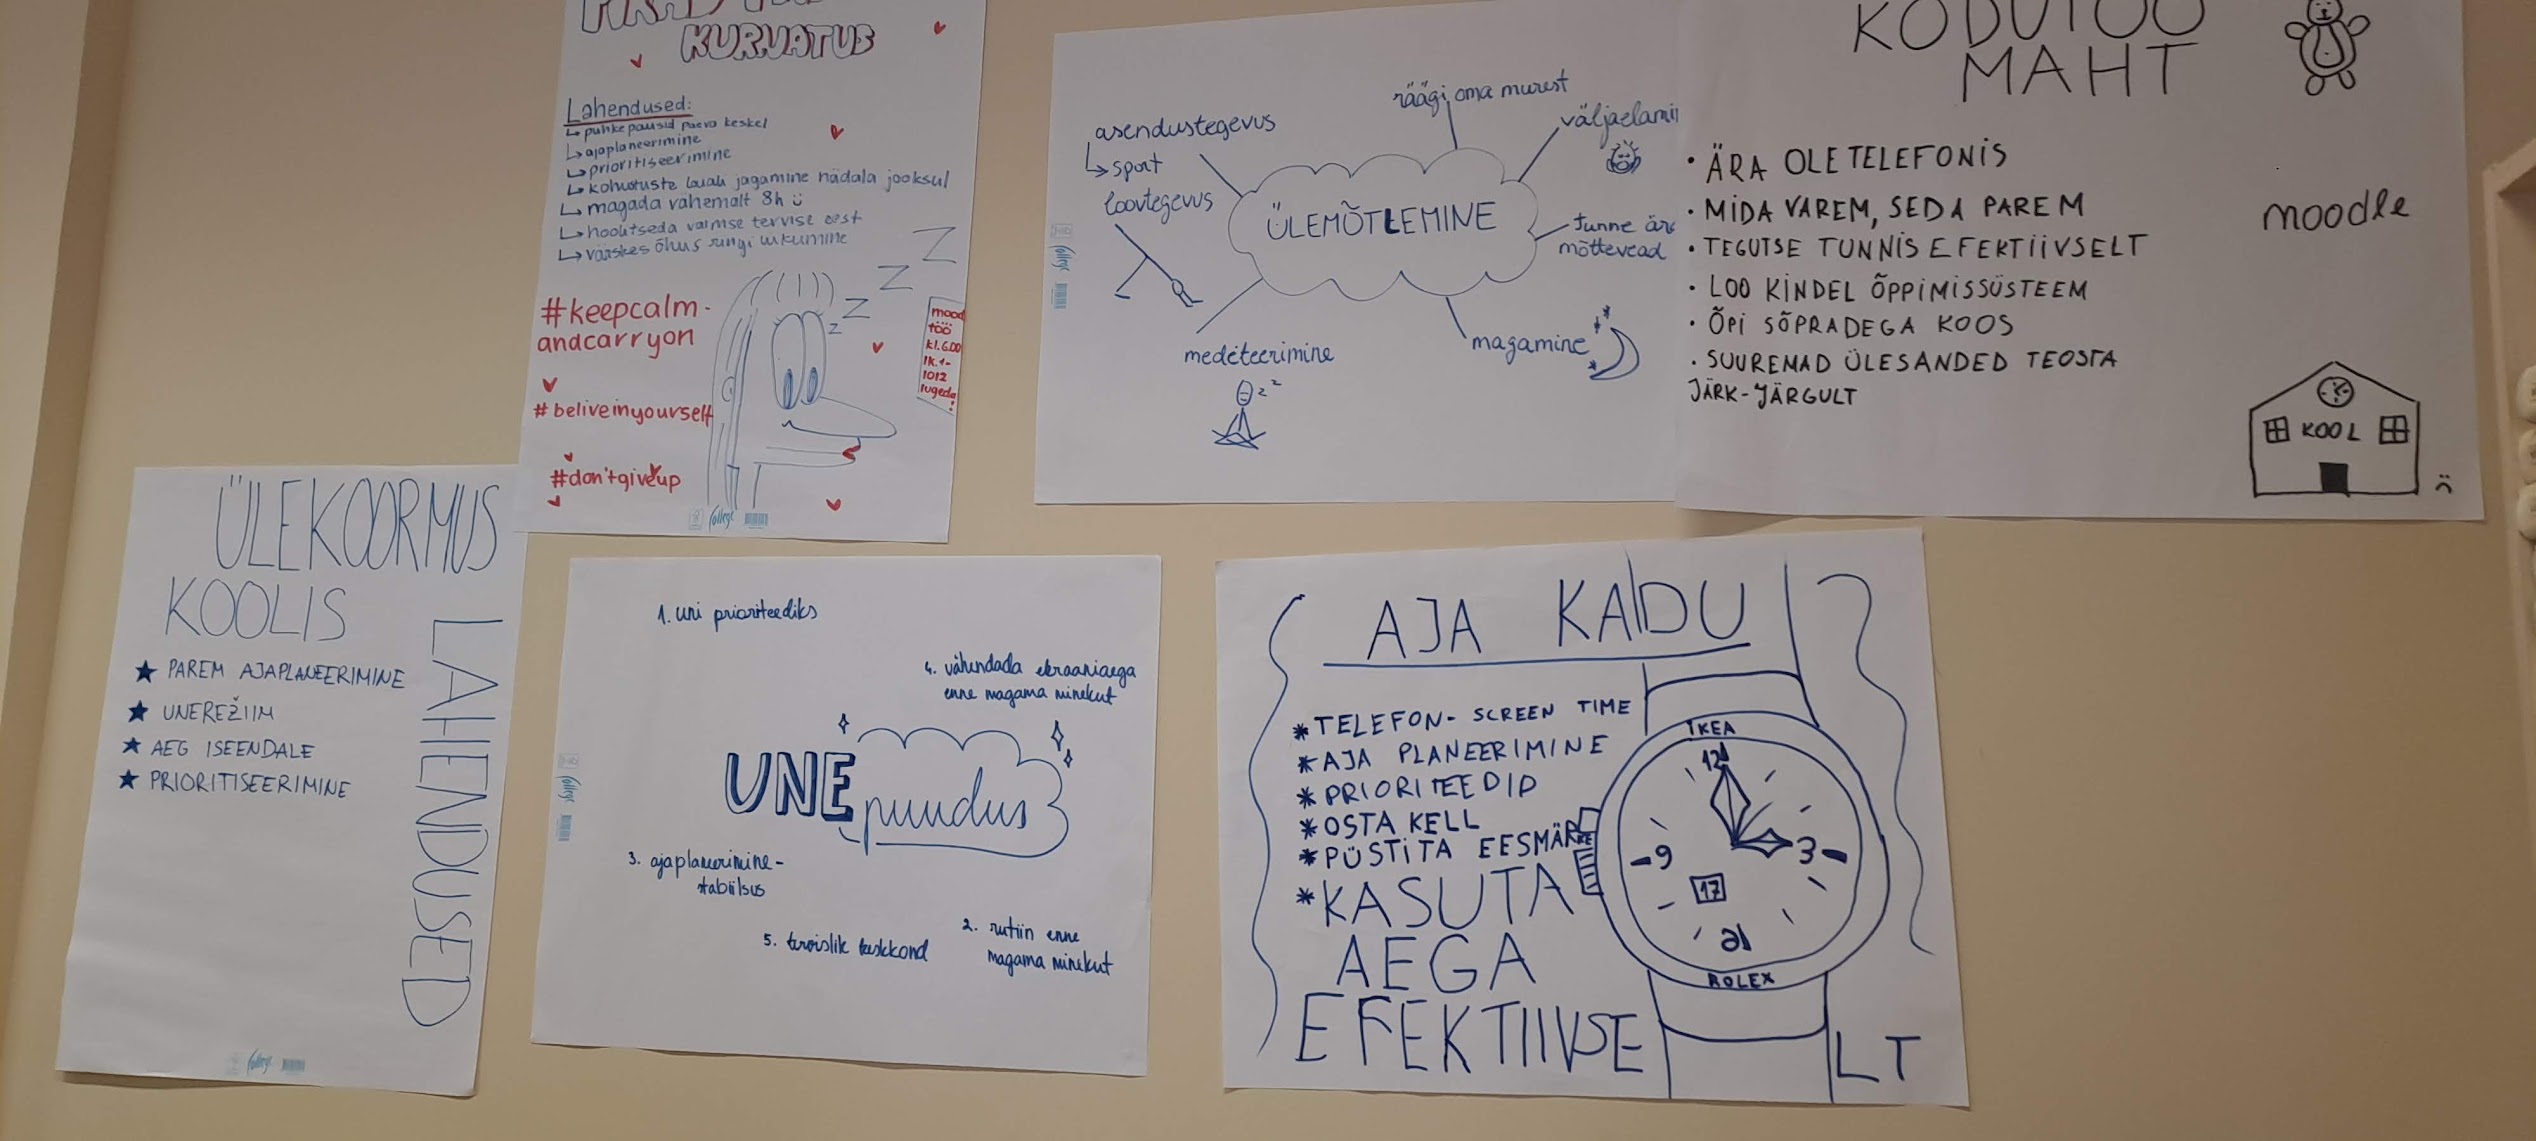 KURNATUS
Lahendused:
↳ puhkepausid päeva keskel
↳ ajaplaneerimine
↳ prioritiseerimine
↳ kohustuste laiali jagamine nädala jooksul
↳ magada vähemalt 8h
↳ hoolitseda vaimse tervise eest
↳ värskes õhus ringi liikumine
#keepcalm-
andcarryon
#beliveinyourself
#don'tgiveup
z z Z Z Z
mood
töö
kl.6.00
lk.1-
1012
lugeda!
College
asendustegevus
↳ sport
loovtegevus
räägi oma murest
väljaelami
ÜLEMÕTLEMINE
tunne är
mõttevead
medeteerimine
z z
magamine
College
KODUTÖÖ
MAHT
• ÄRA OLE TELEFONIS
• MIDA VAREM, SEDA PAREM
• TEGUTSE TUNNIS EFEKTIIVSELT
• LOO KINDEL ÕPPIMISSÜSTEEM
• ÕPI SÕPRADEGA KOOS
• SUUREMAD ÜLESANDED TEOSTA
JÄRK-JÄRGULT
moodle
KOOL
ÜLEKOORMUS
KOOLIS
★ PAREM AJAPLANEERIMINE
★ UNEREŽIIM
★ AEG ISEENDALE
★ PRIORITISEERIMINE
LAHENDUSED
College
1. uni prioriteediks
4. vähendada ekraaniaega
enne magama minekut
UNE puudus
3. ajaplaneerimine-
stabiilsus
5. tervislik keskkond
2. rutiin enne
magama minekut
College
AJA KADU
* TELEFON- SCREEN TIME
* AJA PLANEERIMINE
* PRIORITEEDID
* OSTA KELL
* PÜSTITA EESMÄRKE
* KASUTA
AEGA
EFEKTIIVSELT
IKEA
12
9
3
17
ROLEX